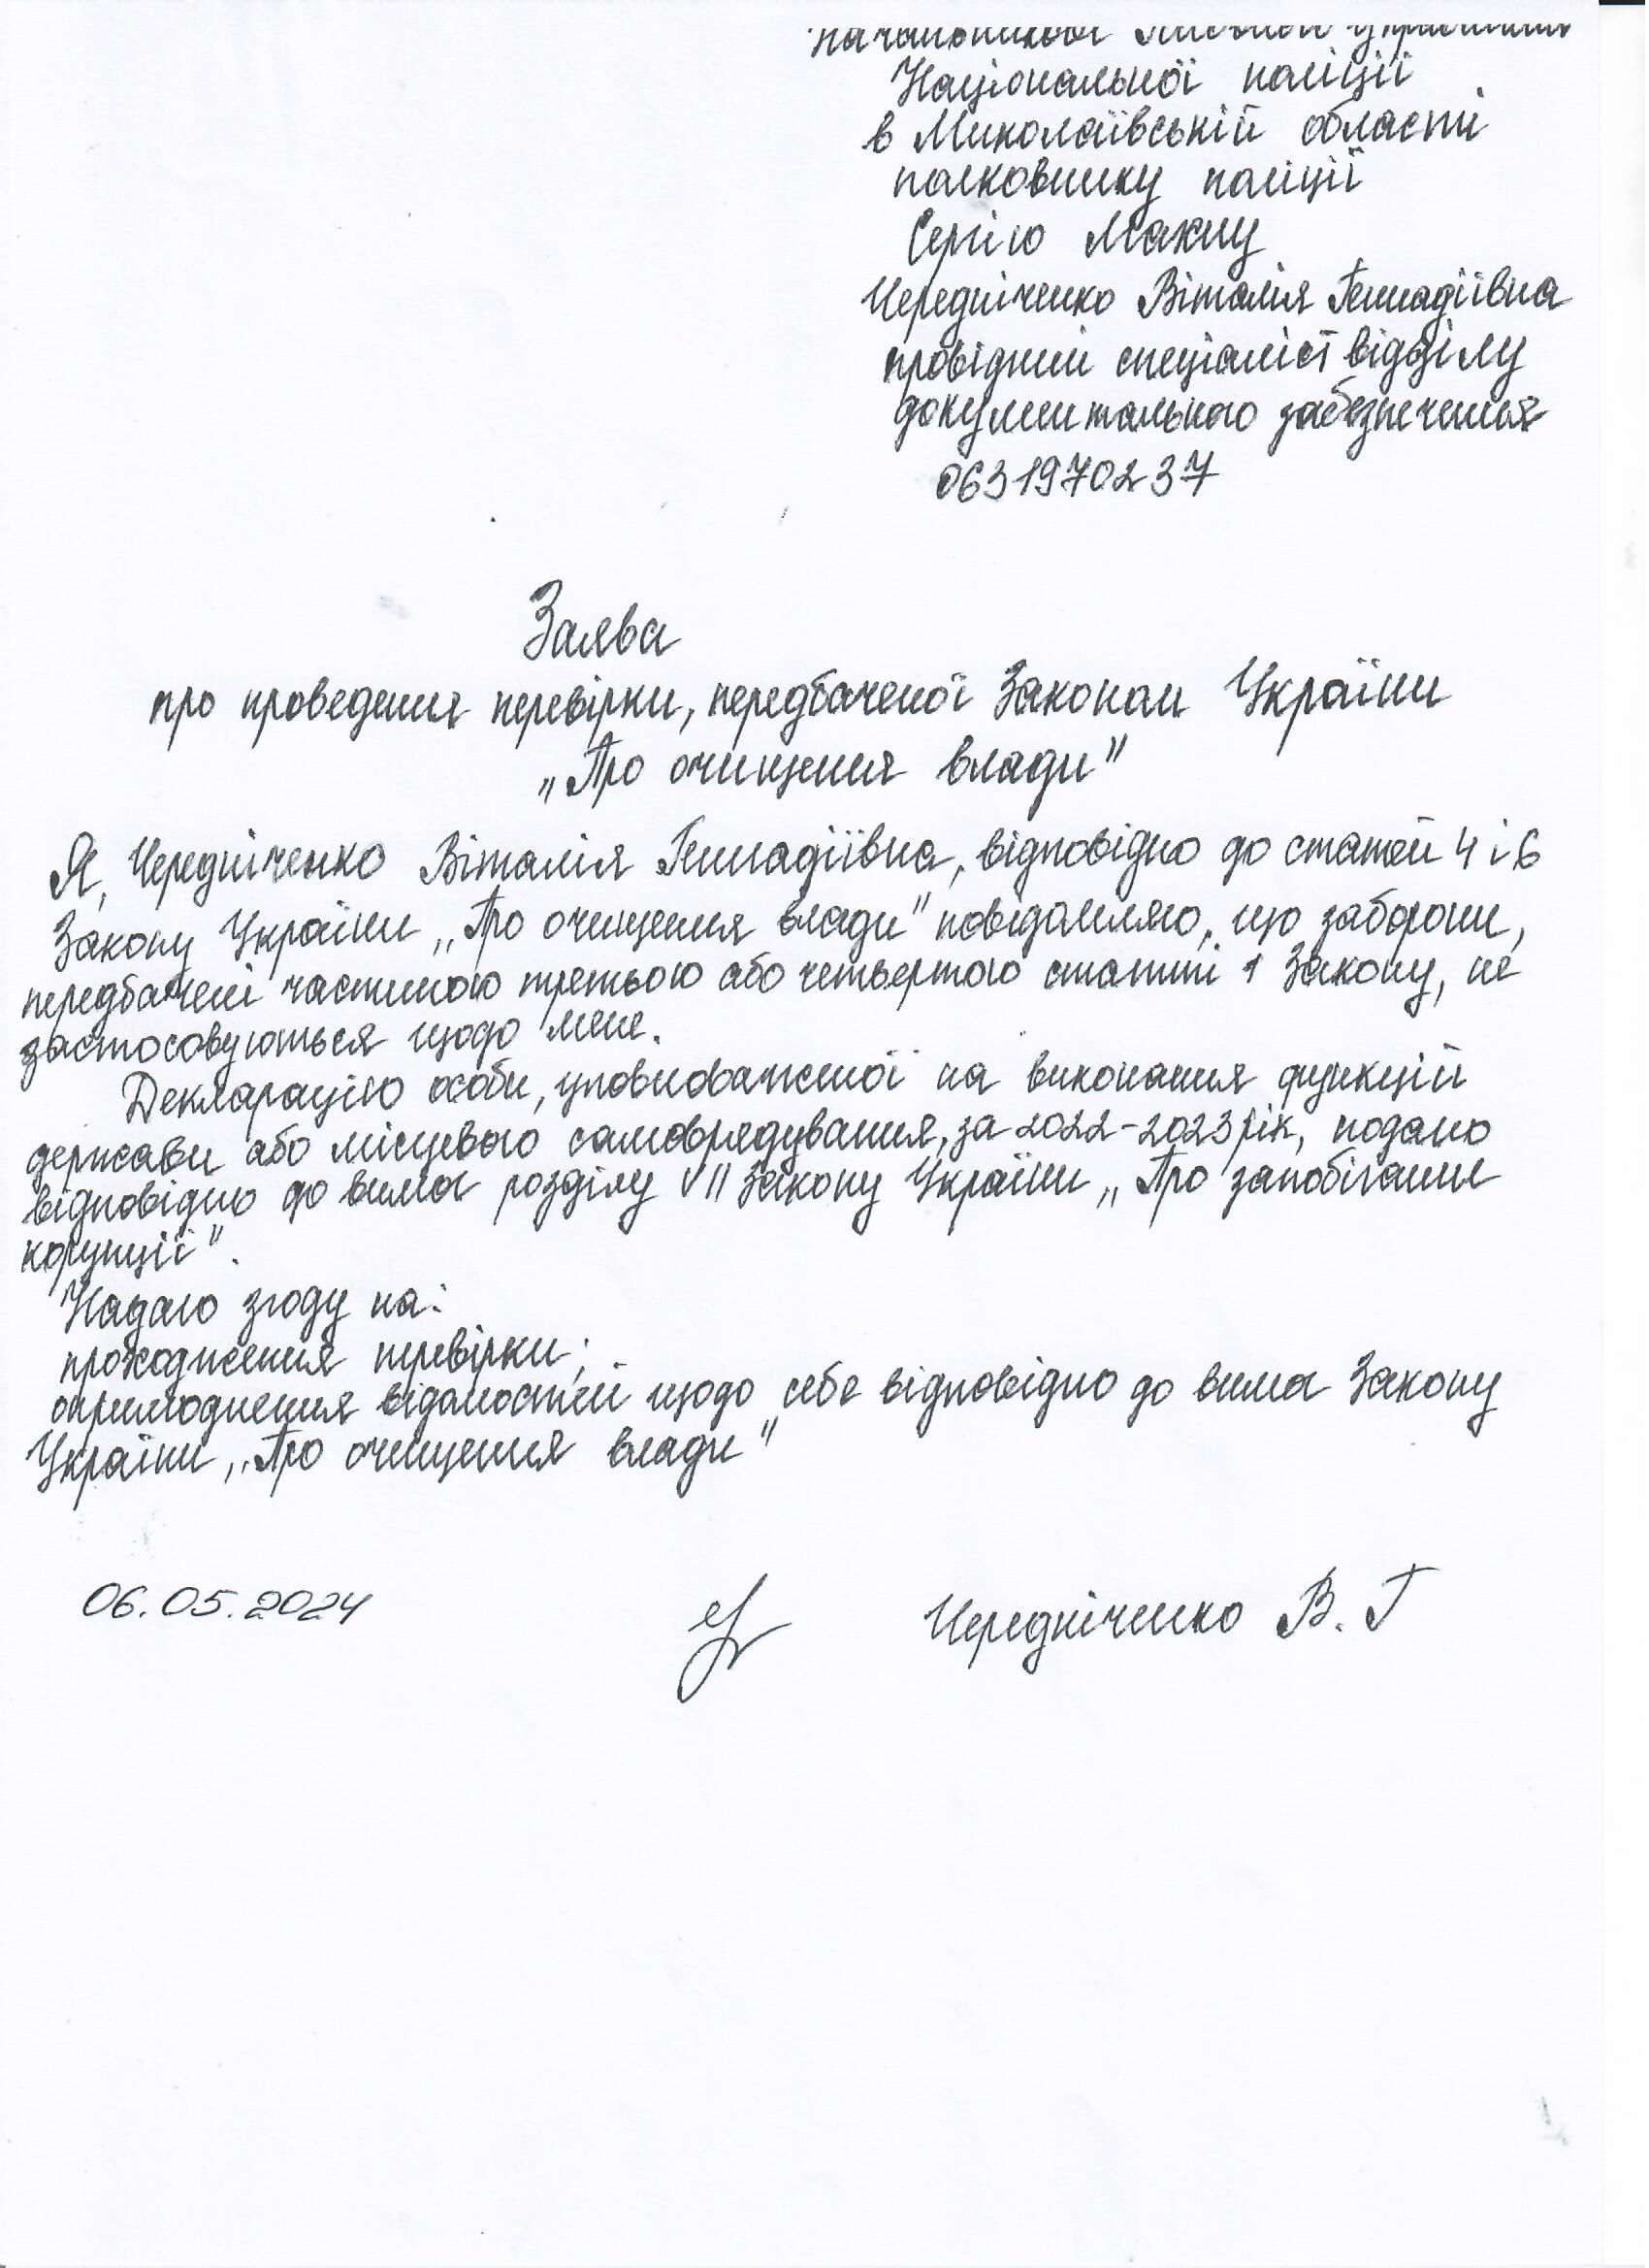 Національної поліції
в Миколаївській області
полковнику поліції
Сергію
Чередніченко Віталія Геннадіївна
провідний спеціаліст відділу
документального забезпечення
0631970237
Заява
про проведення перевірки, передбаченої Законом України
„Про очищення влади"
Я, Чередніченко Віталія Геннадіївна, відповідно до статей 4 і 6
Закону України „Про очищення влади" повідомляю, що заборони,
передбачені частиною третьою або четвертою статті 1 Закону, не
застосовуються щодо мене.
Декларацію особи, уповноваженої на виконання функцій
держави або місцевого самоврядування, за 2022-2023 рік, подано
відповідно до вимог розділу VII Закону України „Про запобігання
корупції".
Надаю згоду на:
проходження перевірки;
оприлюднення відомостей щодо себе відповідно до вимог Закону
України „Про очищення влади"
06.05.2024
Чередніченко В. Г